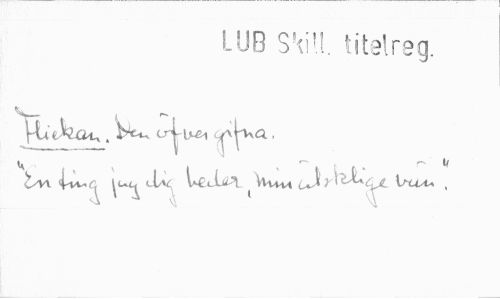 LUB Skill. titelreg.
Flickan. Den öfvergifna.
"En ting jag dig beder, min älsklige vän".